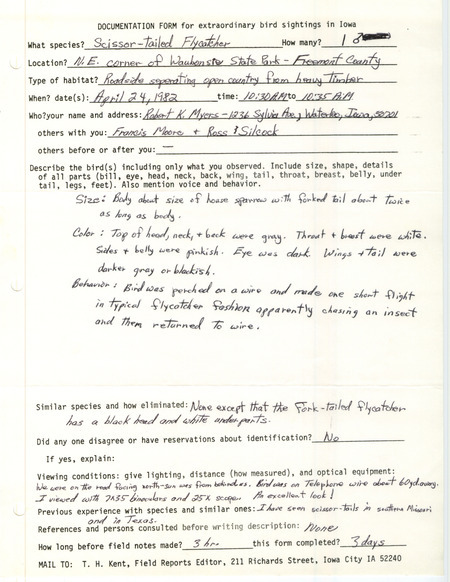 DOCUMENTATION FORM for extraordinary bird sightings in Iowa
What species? Scissor-tailed Flycatcher How many? 1
Location? N.E. corner of Waubonsie State Park - Freemont County
Type of habitat? Roadside seperating open country from heavy timber
When? date(s): April 24, 1982 time: 10:30AM to 10:35 AM
Who? your name and address: Robert K. Myers - 1236 Sylvia Ave, Waterloo, Iowa, 50701
others with you: Francis Moore + Ross Silcock
others before or after you: —
Describe the bird(s) including only what you observed. Include size, shape, details
of all parts (bill, eye, head, neck, back, wing, tail, throat, breast, belly, under
tail, legs, feet). Also mention voice and behavior.
Size: Body about size of house sparrow with forked tail about twice
as long as body.
Color: Top of head, neck, + back were gray. Throat + breast were white.
Sides + belly were pinkish. Eye was dark. Wings + tail were
darker gray or blackish.
Behavior: Bird was perched on a wire and made one short flight
in typical flycatcher fashion apparently chasing an insect
and then returned to wire.
Similar species and how eliminated: None except that the Fork-tailed flycatcher
has a black head and white underparts.
Did any one disagree or have reservations about identification? No
If yes, explain:
Viewing conditions: give lighting, distance (how measured), and optical equipment:
We were on the road facing north-sun was from behind us. Bird was on Telephone wire about 60yd. away.
I viewed with 7x35 binoculars and 25x scope. An excellent look!
Previous experience with species and similar ones: I have seen scissor-tails in southern Missouri
and in Texas.
References and persons consulted before writing description: None
How long before field notes made? 3 hr. this form completed? 3 days
MAIL TO: T. H. Kent, Field Reports Editor, 211 Richards Street, Iowa City IA 52240